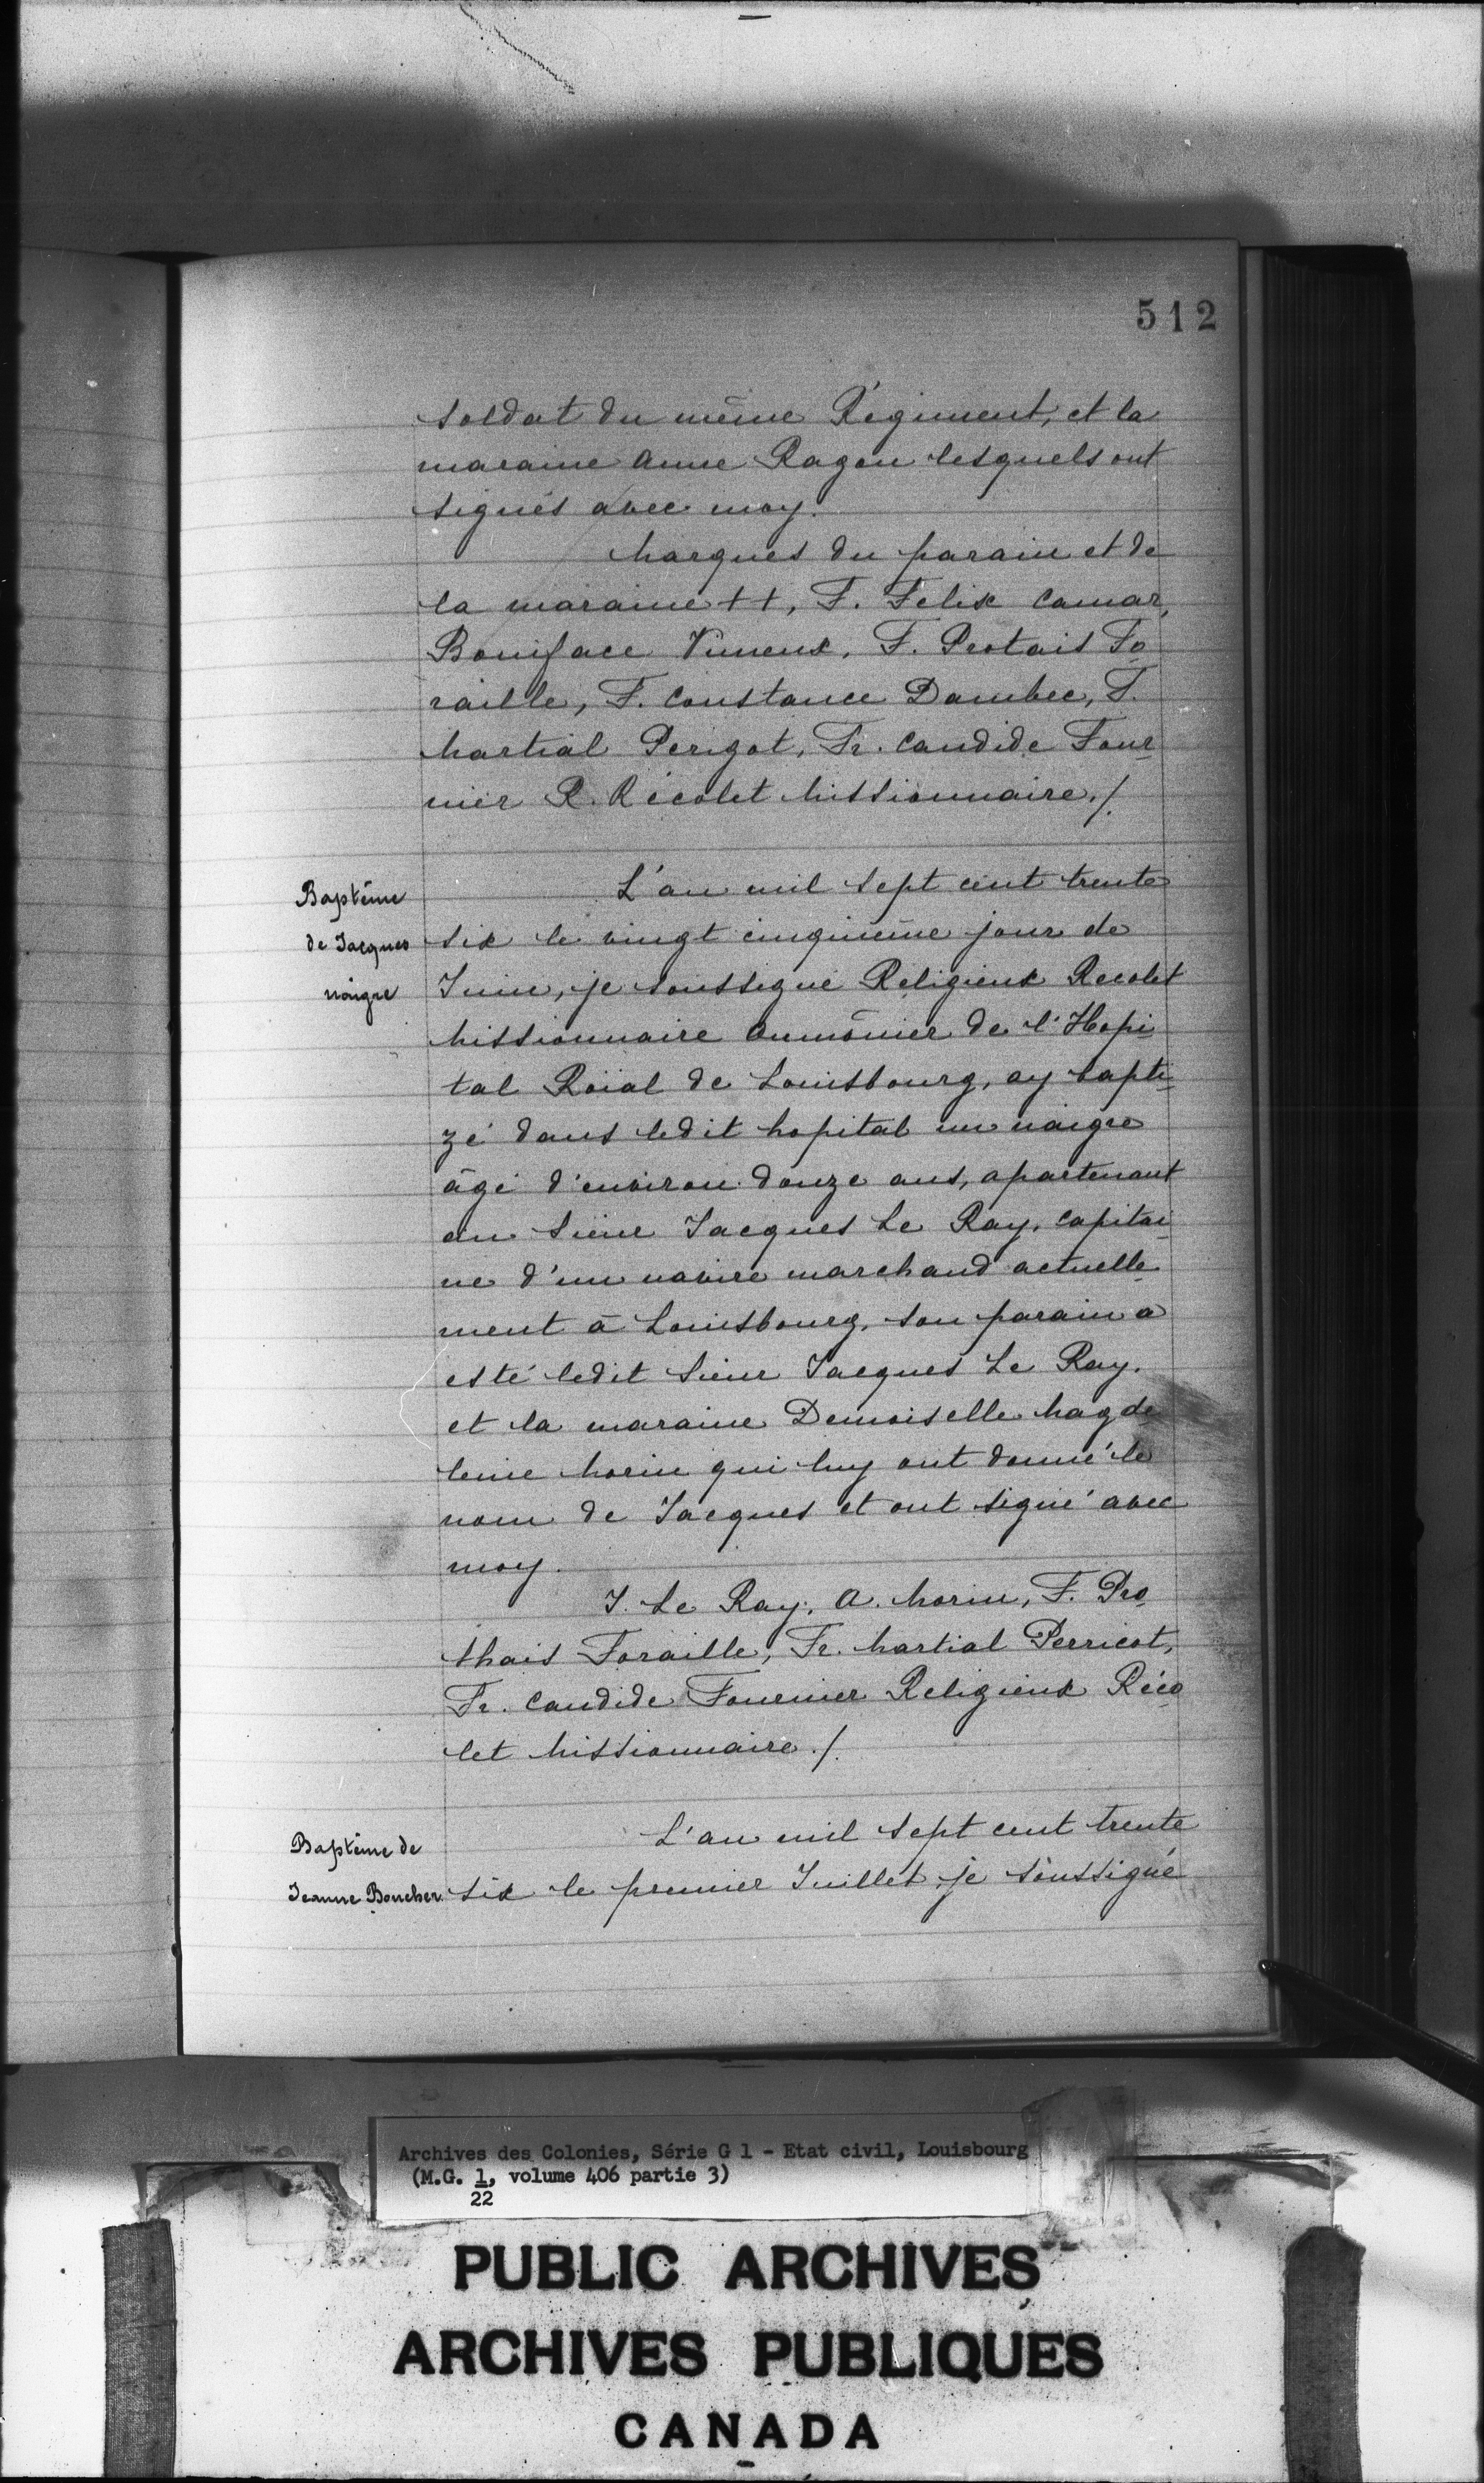 512
soldat du même Régiment, et la
maraine Anne Ragon lesquels ont
signés avec moy.
Marques du parain et de
la maraine ++, F. Felix Camar,
Boniface Vimeux, F. Protais Fo
raille, F. Constance Dambec, F.
Martial Perigot, Fr. Candide Four
nier R. Récolet Missionnaire./.
Baptême
de Jacques
naigre
L'an mil sept cent trente
six le vingt cinquième jour de
Juin, je soussigné Religieux Recolet
Missionnaire Aumônier de l'Hopi
tal Roïal de Louisbourg, ay bapti
zé dans ledit hopital un naigre
âgé d'environ douze ans, apartenant
au Sieur Jacques Le Ray, Capitai
ne d'un navire marchand actuelle
ment à Louisbourg, son parain a
esté ledit Sieur Jacques Le Ray.
et la maraine Demoiselle Magde
leine Morin qui luy ont donné le
nom de Jacques et ont signé avec
moy.
J. Le Ray, A. Morin, F. Pro
thais Foraille, Fr. Martial Perricot,
Fr. Candide Fournier Religieux Réco
let Missionnaire./.
Baptême de
Jeanne Boucher
L'an mil sept cent trente
six le premier Juillet je soussigné
Archives des Colonies, Série G 1 - Etat civil, Louisbourg
(M.G. 1, volume 406 partie 3)
22
PUBLIC ARCHIVES
ARCHIVES PUBLIQUES
CANADA